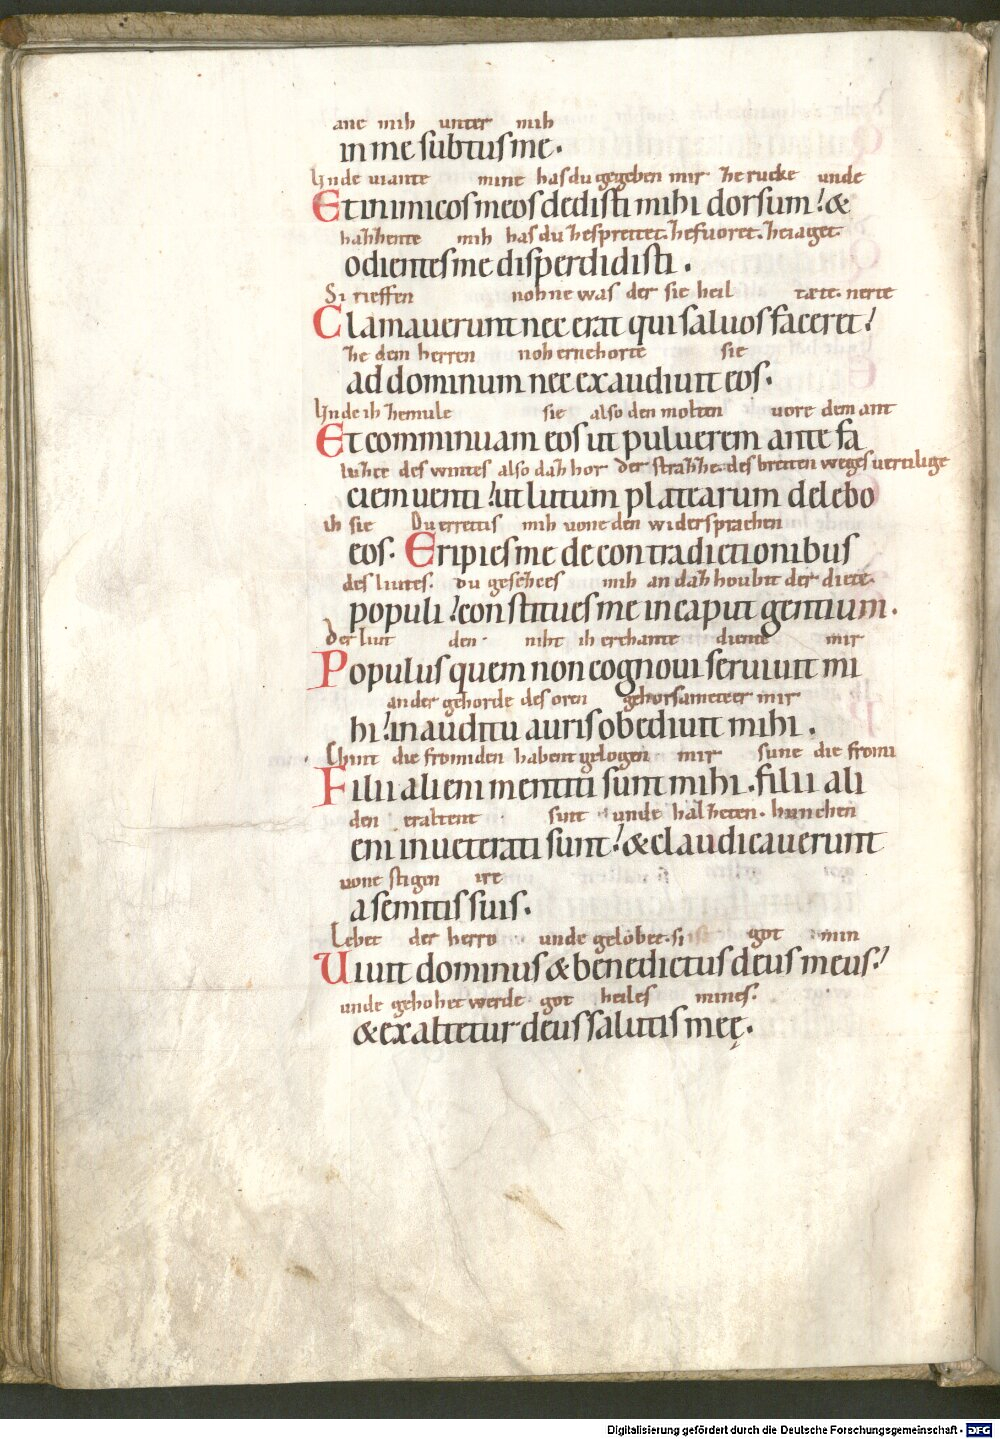 ane mih unter mih
in me subtus me.
Unde viante mine hasdu gegeben mir zerucke unde
Et inimicos meos dedisti mihi dorsum! &
hahhente mih hasdu zespreitet. zefuoret. zeiaget.
odientes me disperdidisti.
Si rieffen nohne was der sie heil tæte. nerte
Clamaverunt nec erat qui salvos faceret!
ze dem herren noh ernehorte sie
ad dominum nec exaudivit eos.
Unde ih zemule sie also den molten vore dem ant
Et comminuam eos ut pulverem ante fa
luhce des wintes also dah hor der strahhe. des breiten weges vertilige
ciem venti! ut lutum platearum delebo
ih sie Du errettis mih vone den widersprachen
eos. Eripies me de contradictionibus
des liutes. du gesezees mih an dah houbit der diete.
populi! constitues me in caput gentium.
Der liut den niht ih erchante diente mir
Populus quem non cognovi servivit mi
ander gehorde des oren gehorsameteer mir
hi! in auditu auris obedivit mihi.
Chint die fromiden habent gelogen mir sune die fromi
Filii alieni mentiti sunt mihi. filii ali
den eraltent sint unde halzeten. hunchen
eni inveterati sunt! & claudicaverunt
vone stigen ire
a semitis suis.
Lebet der herro unde gelobet. si ist got min
Vivit dominus & benedictus deus meus!
unde gehohet werde got heiles mines.
& exaltetur deus salutis meę.
Digitalisierung gefördert durch die Deutsche Forschungsgemeinschaft - DFG